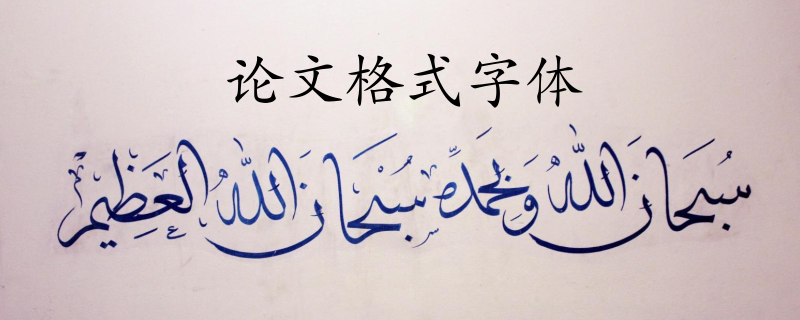 论文格式字体
سُبْحَانَ اللهِ وَبِحَمْدِهِ سُبْحَانَ اللهِ العَظِيْم